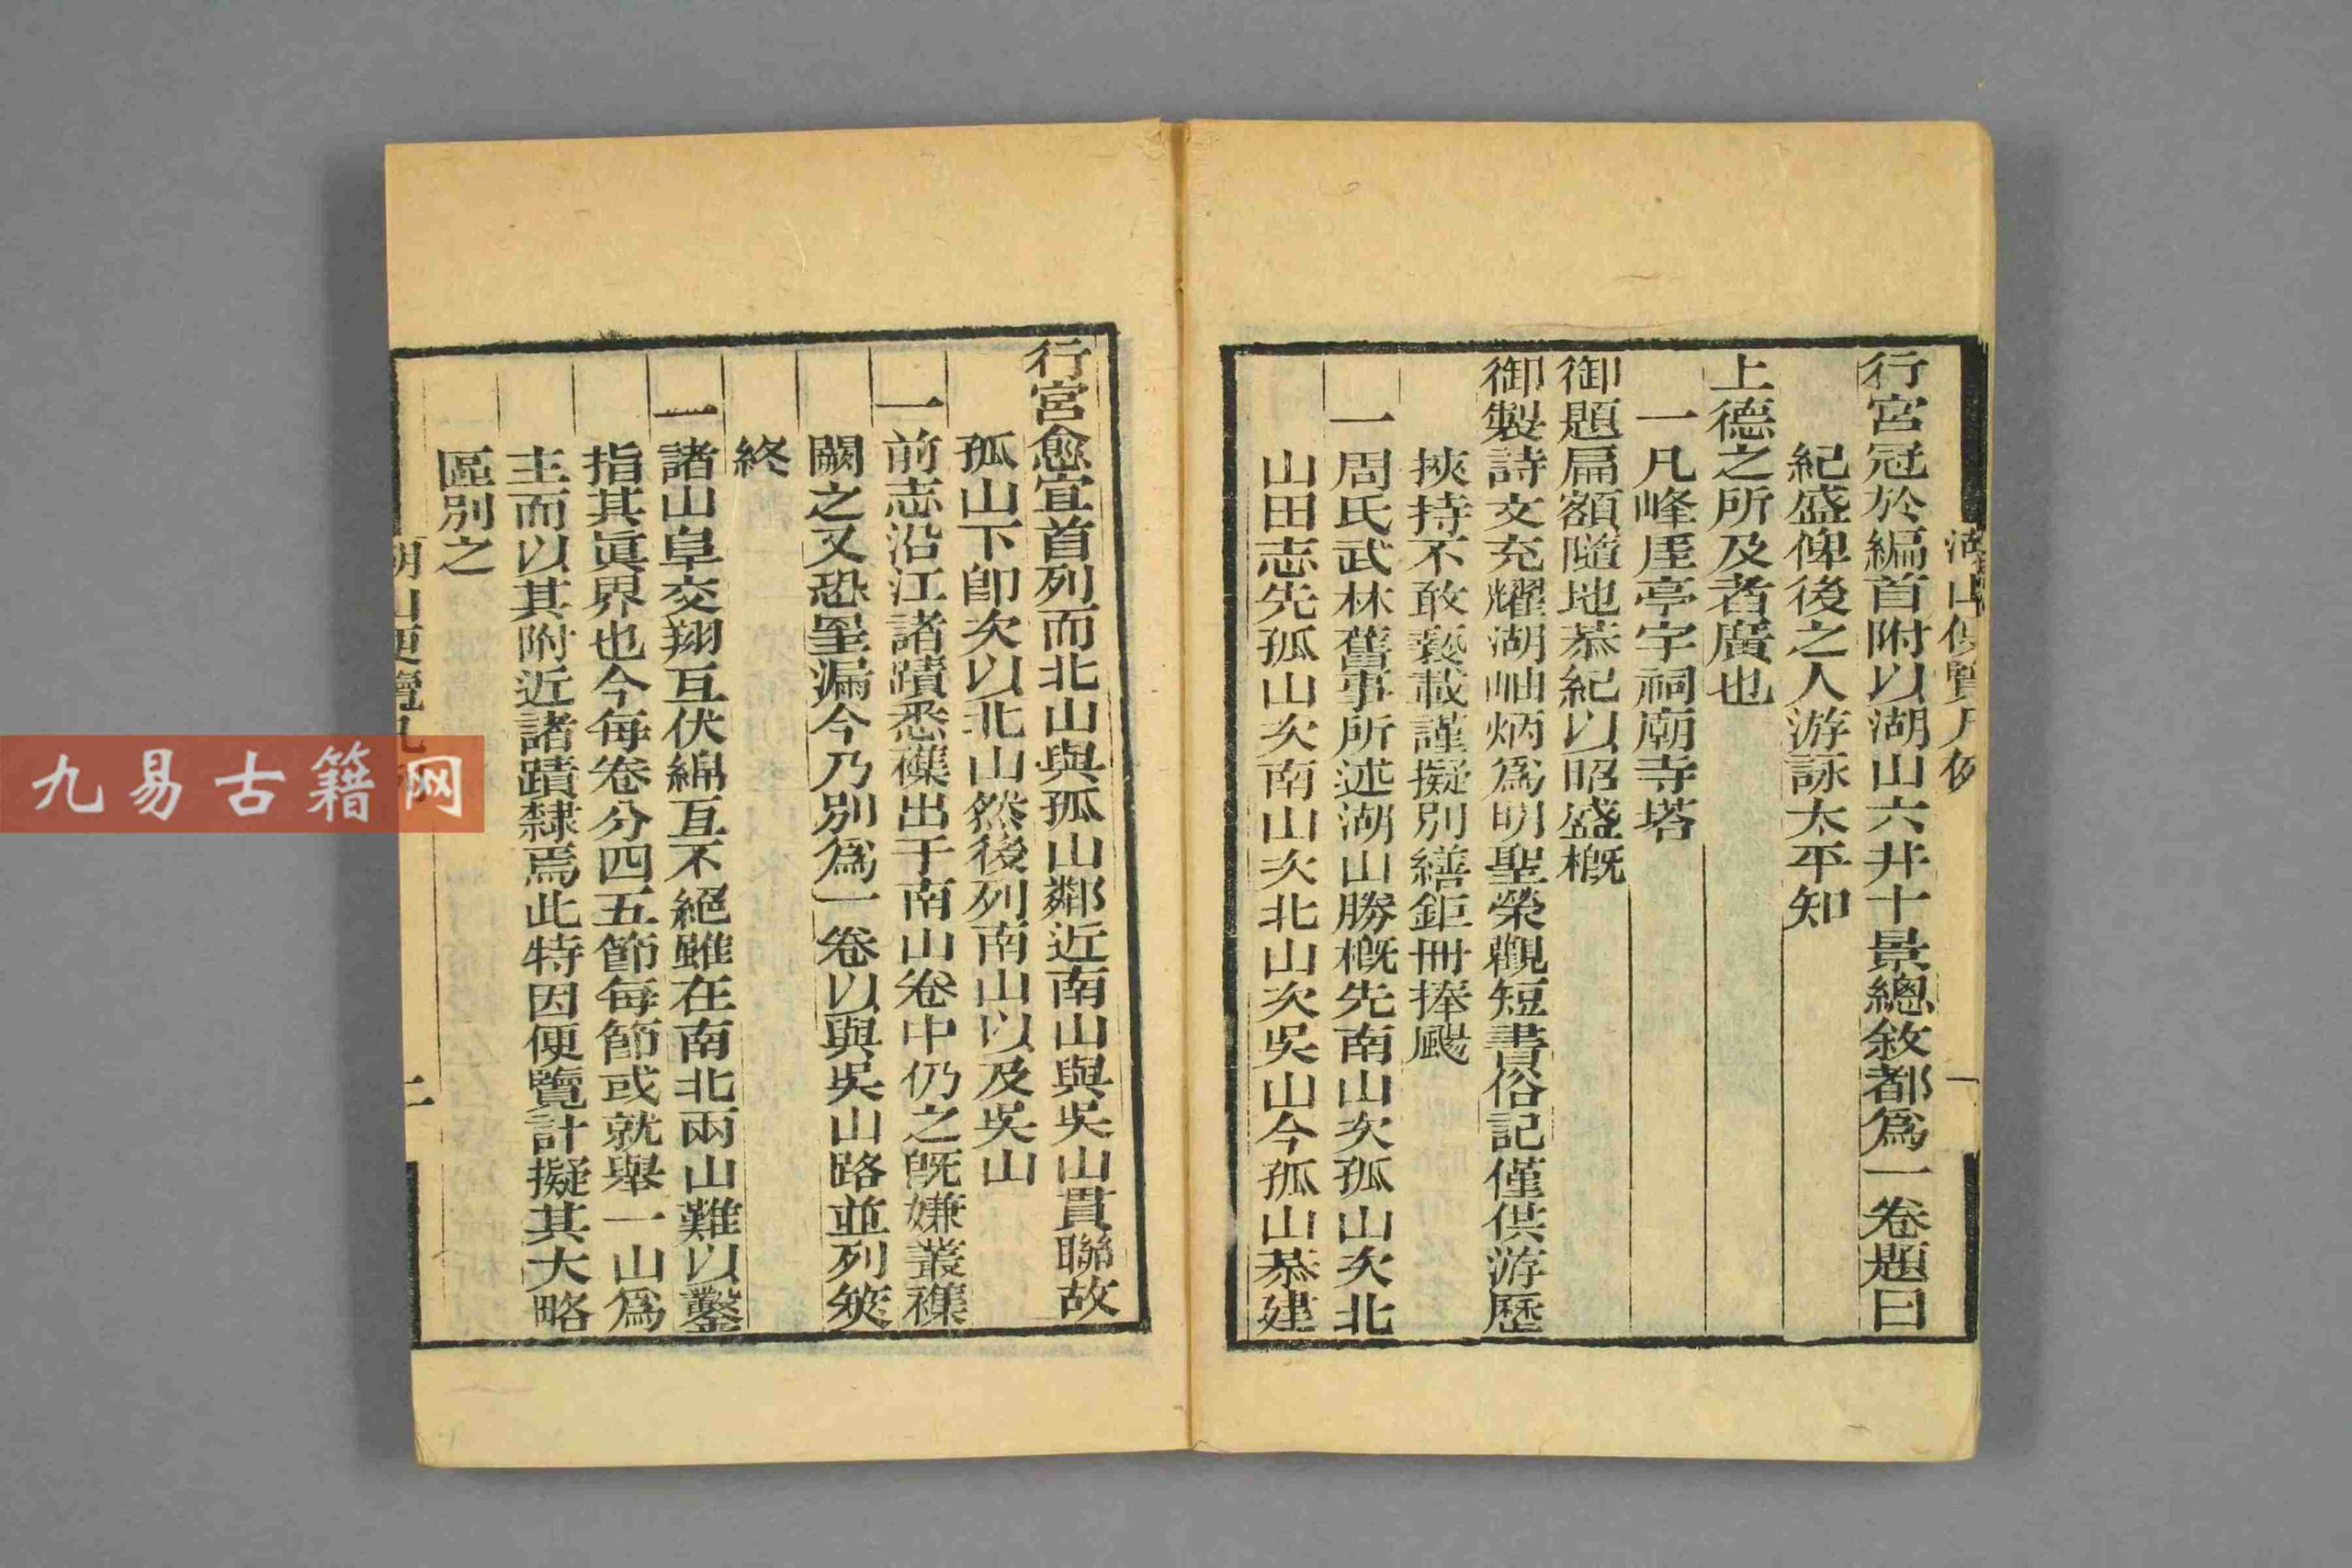 湖山便覽凡例
一
行宮冠於編首附以湖山六井十景總敘都爲一卷題曰
紀盛俾後之人游詠太平知
上德之所及者廣也
一凡峰厓亭宇祠廟寺塔
御題扁額隨地恭紀以昭盛槪
御製詩文充耀湖岫炳爲明聖榮觀短書俗記僅供游歷
挾持不敢褻載謹擬別繕鉅冊捧颺
一周氏武林舊事所述湖山勝槪先南山次孤山次北
山田志先孤山次南山次北山次吳山今孤山恭建
行宮愈宜首列而北山與孤山鄰近南山與吳山貫聯故
孤山下卽次以北山然後列南山以及吳山
一前志沿江諸蹟悉襍出于南山卷中仍之旣嫌叢襍
闕之又恐罣漏今乃別爲一卷以與吳山路並列筴
終
一諸山阜交翔互伏綿亙不絕雖在南北兩山難以鑿
指其眞界也今每卷分四五節每節或就舉一山爲
主而以其附近諸蹟隸焉此特因便覽計擬其大略
區別之
湖山便覽凡
二
九易古籍网